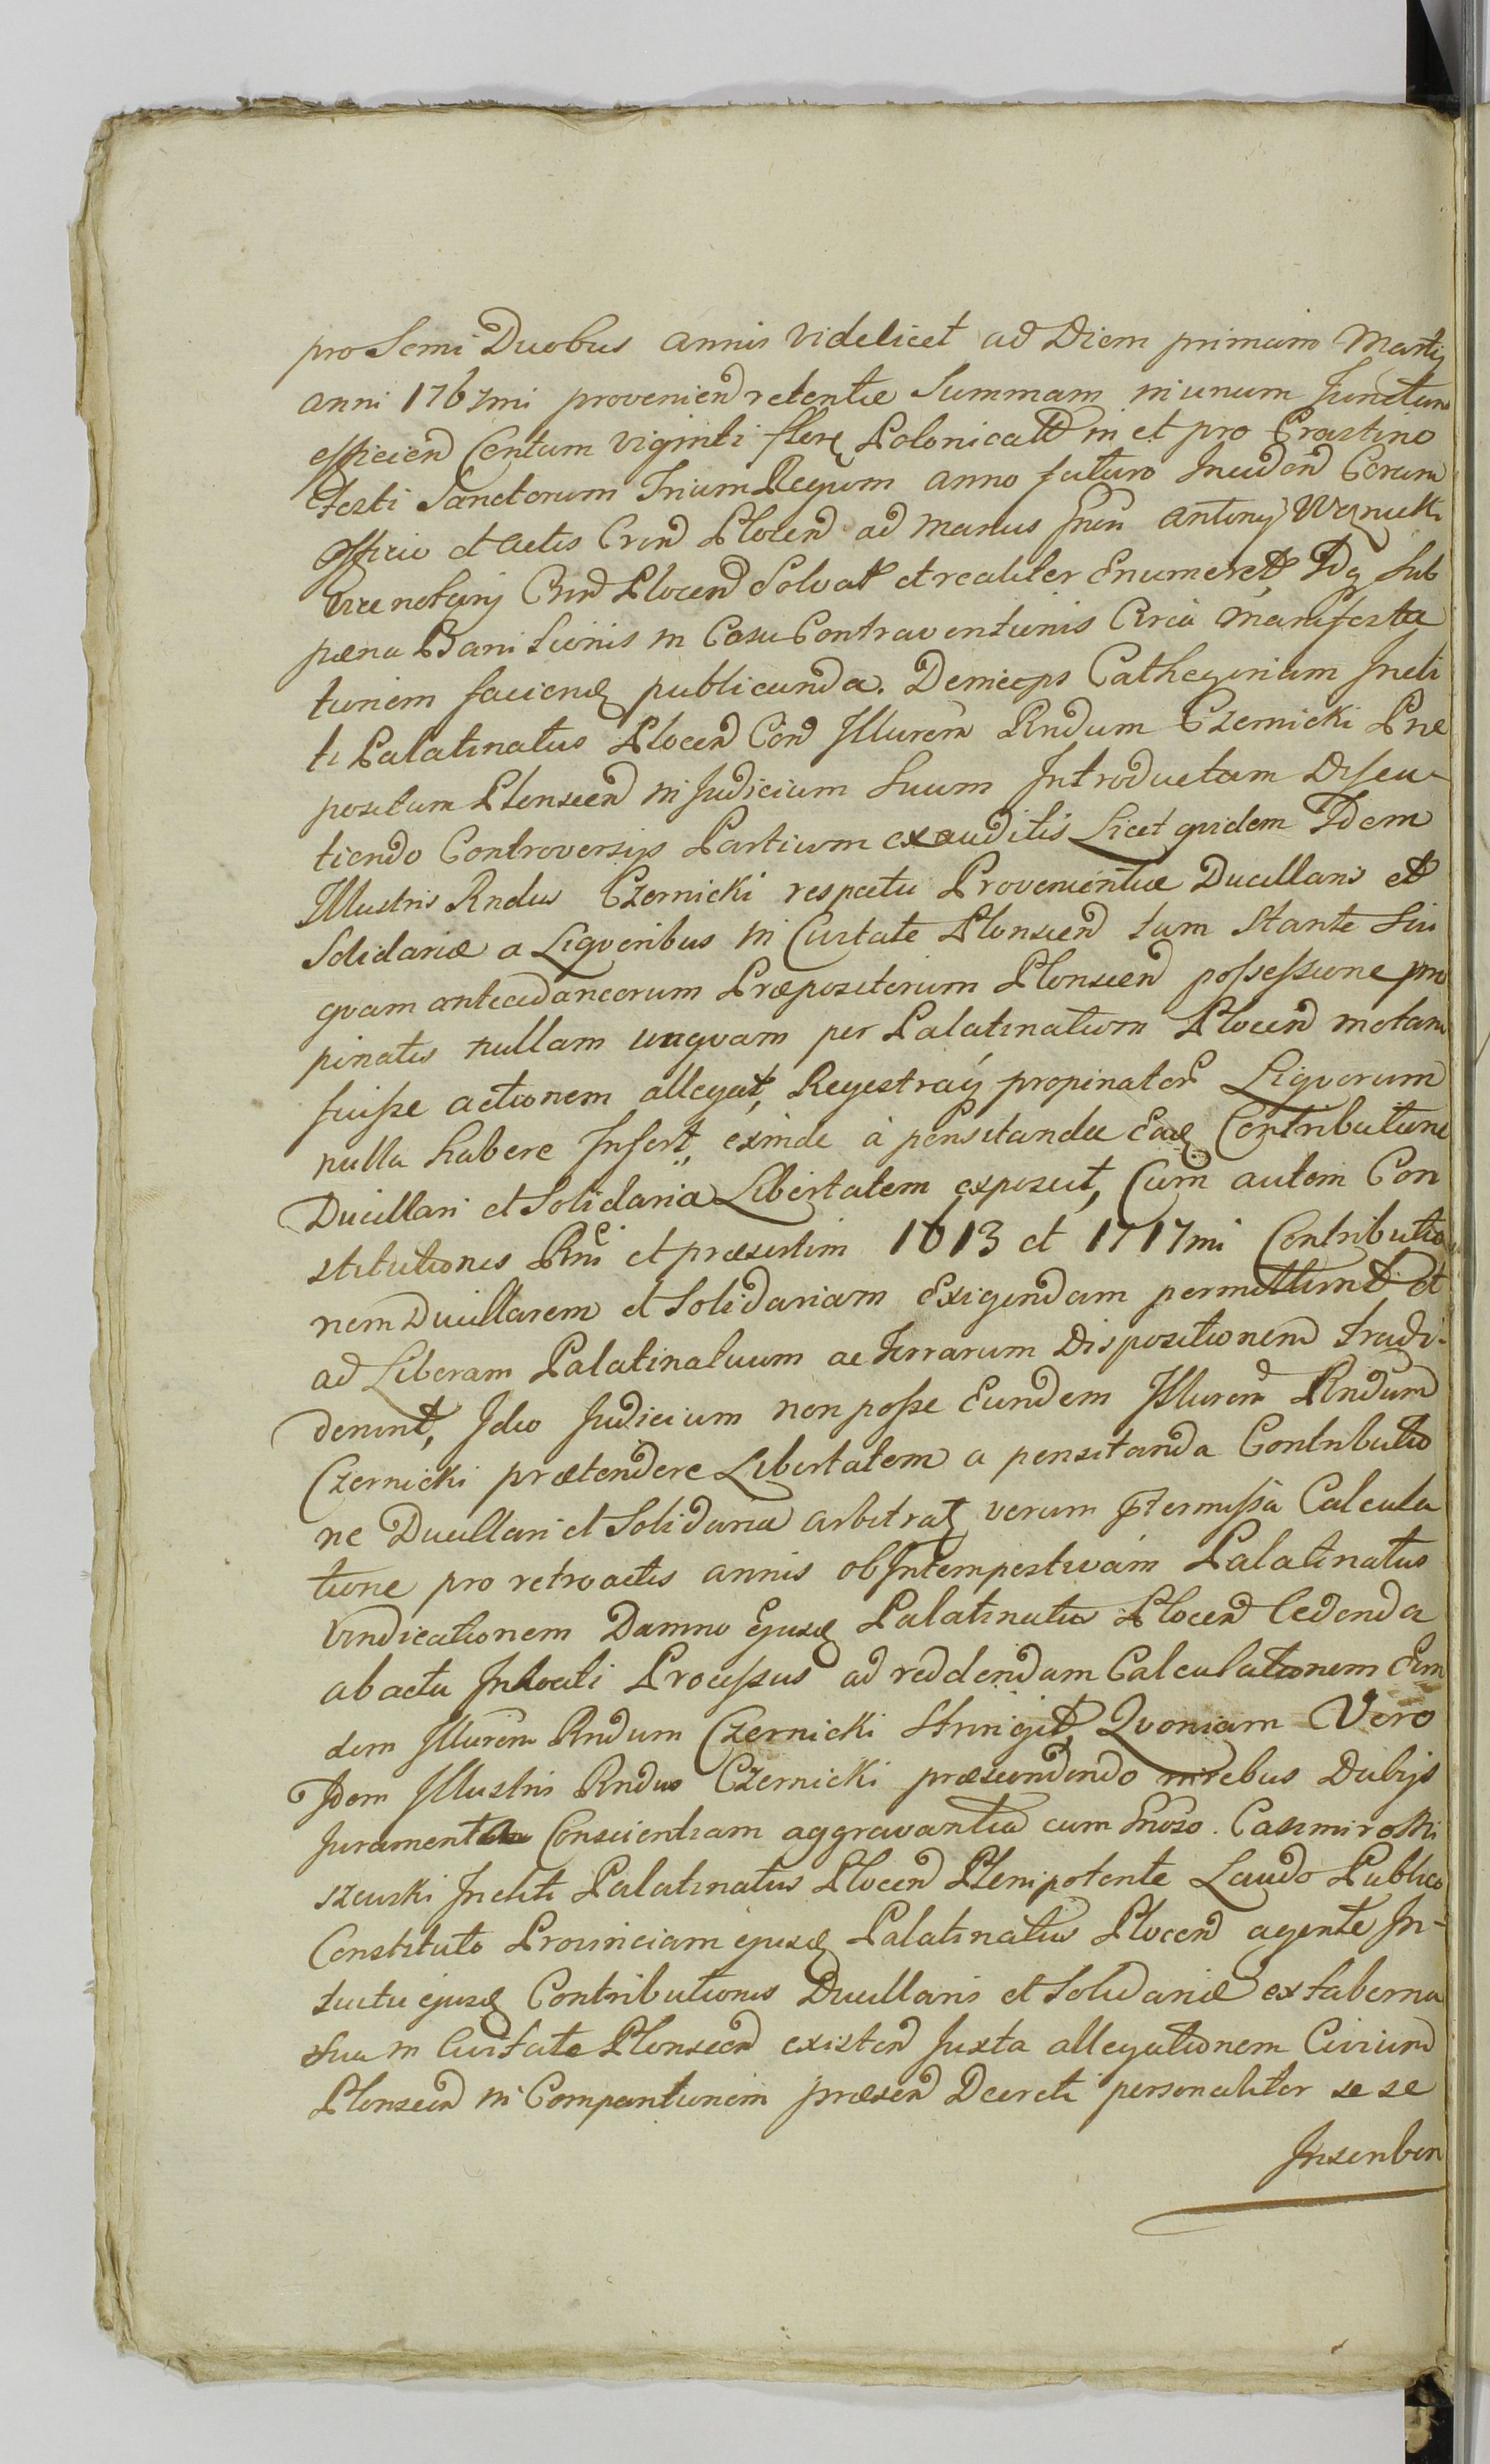 pro Semi Duobus annis videlicet ad Diem primam Martij
anni 1767mi provenien retentæ Summam in unum Junctum
efficien Centum viginti flore Polonicales in et pro Crastino
Festi Sanctorum Trium Regum anno futuro Inciden Coram
Officio et actis Cren Plocen ad manus Gnri Antonij
Vice notarij Cren Plocen Solvat et realiter Enumeret, Idq Sub
pæna Banitionis in Casu Contraventionis Circa Manifesta
tionem faciend publicanda. Demceps Cathegoriam Incli
ti Palatinatus Plocen Con Illurem Rndum Czernicki Præ
positum Plonscen in Judicium Suum Introductam Discu-
tiendo Controversijs Partium exauditis Licet quidem Idem
Illustris Rndus Czernicki respectu Provenientiæ Ducillaris et
Solidariæ a Liqvoribus in Civitate Plonscen tam Stante Sui
qvam antecedaneorum Præpositorum Plonscen possessione pro
pinatis nullam unqvam per Palatinatum Plocen motam
fuisse actionem allegat, Regestraq propinator Liqvorum
nulla habere Infert, exinde à pensitanda Ead Contributione
Ducillari et Solidaria Libertatem exposcit, Cum autem Con
stitutiones Rni et præsertim 1613 et 1717mi Contributio
nem Ducillarem et Solidariam Exigendam permittunt et
ad Liberam Palatinatuum ac Terrarum Dispositionem tradi-
derunt, Ideo Judicium non posse Eundem Illurem Rndum
Czernicki prætendere Libertatem a pensitanda Contributio
ne Ducillari et Solidaria arbitrat verum prætermissa Calcula
tione pro retroactis annis ob Intempestivam Palatinatus
Vindicationem Damno Ejusd Palatinatus Plocen Cedenda
ab actu Intentati Processus ad reddendam Calculationem Eun
dem Illurem Rndum Czernicki Stringit, Qvoniam Vero
Idem Illustris Rndus Czernicki præscindendo in rebus Dubijs
Juramenta Conscientiam aggravantia cum Gnoso Casimiro
szewski Incliti Palatinatus Plocen Plenipotente Laudo Publico
Constituto Provinciam ejusd Palatinatus Plocen agente In-
tuitu ejusd Contributionis Ducillaris et Solidariæ ex taberna
sua in Civitate Plonscen existen Juxta allegationem Civium
Plonscen in Comparitionem præsen Decreti personaliter se se
Inscriben